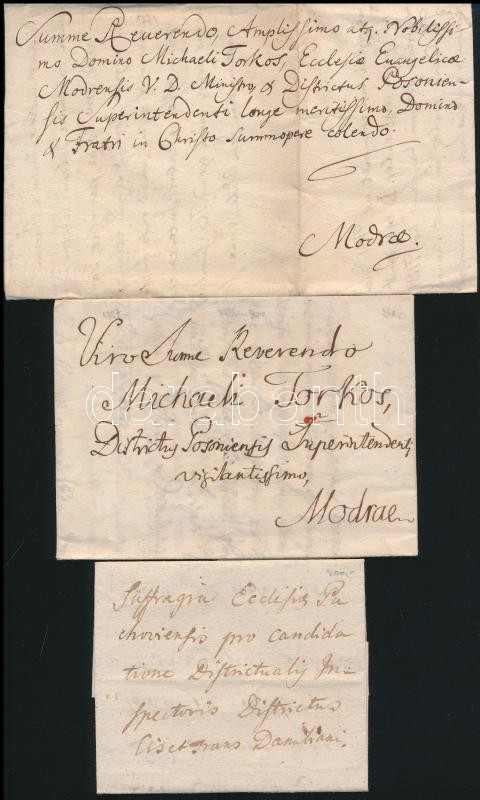 Summe Reverendo, Amplissimo atq. Nobilissi-
mo Domino Michaeli Torkos, Ecclesiæ Evangelicæ
Modrensis V. D. Ministro, & Districtus Posonien-
sis Superintendenti longe meritissimo, Domino
& Fratri in Christo summopere colendo.
Modræ.
Viro Sume Reverendo
Michaeli Torkos,
Districtus Posoniensis Superintendenti
vigilantissimo,
Modrae
darabanth
Suffragia Ecclesiæ Pu
choviensis pro candida
tione Districtualis In-
spectoris Districtus
Cis et Trans Danubiani.